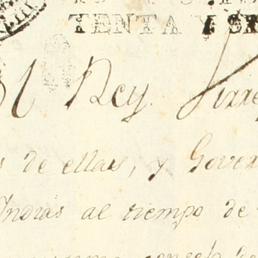 TENTA Y SE
El Rey. Virre
s de ellas, y Gover
Indias al tiempo de